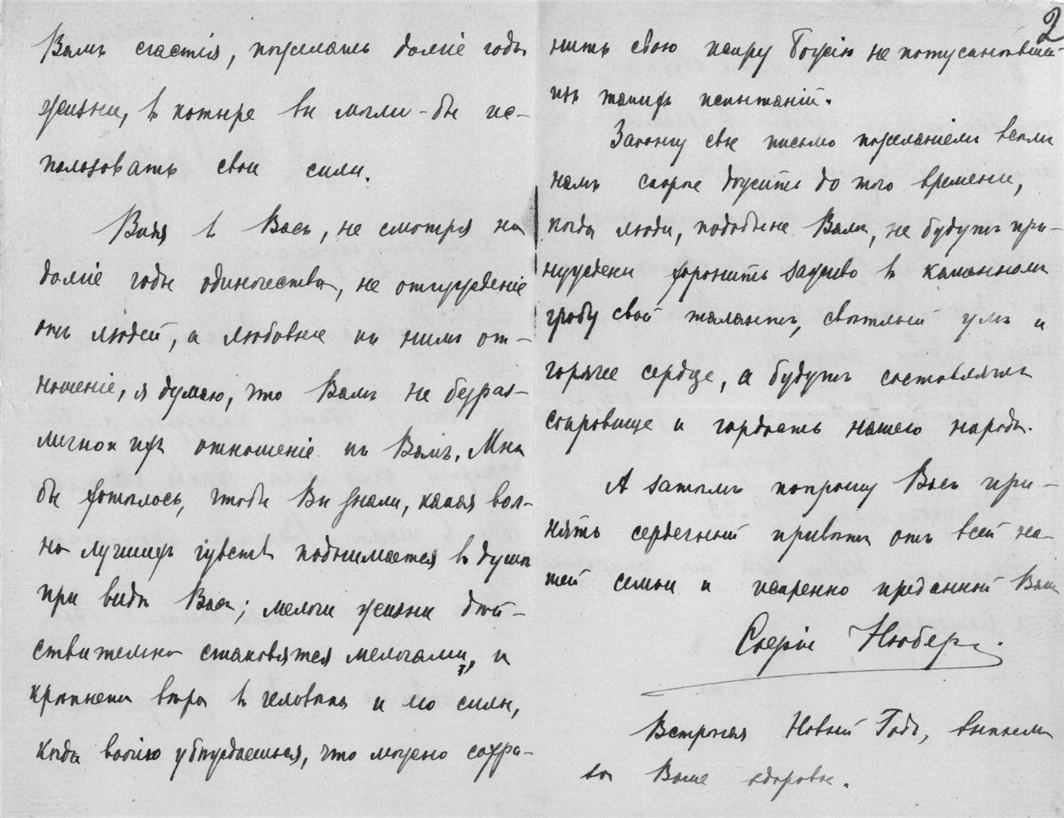 Вамъ счастія, пожелать долгіе годы
жизни, въ которые вы могли-бы ис-
пользовать свои силы.
Видя въ Васъ, не смотря на
долгіе годы одиночества, не отчужденіе
отъ людей, а любовное къ нимъ от-
ношеніе, я думаю, что Вамъ не безраз-
лично и ихъ отношеніе къ Вамъ. Мнѣ
бы хотѣлось, чтобы Вы знали, какая вол-
на лучшихъ чувствъ поднимается въ душѣ
при видѣ Васъ; мелочи жизни дѣй-
ствительно становятся мелочами, и
крѣпнетъ вѣра въ человѣка и его силы,
когда воочію убѣждаешься, что можно сохра-
2
нить свою искру Божію не потускнѣвшей
изъ такихъ испытаній.
Закончу свое письмо пожеланіемъ всѣмъ
намъ скорѣе дожить до того времени,
когда люди, подобные Вамъ, не будутъ при-
нуждены хоронить заживо въ каменномъ
гробу свой талантъ, свѣтлый умъ и
горячее сердце, а будутъ составлять
сокровище и гордость нашего народа.
А затѣмъ попрошу Васъ при-
нять сердечный привѣтъ отъ всей на-
шей семьи и искренно преданной Вамъ
Софіи Нюберг.
Встрѣчая Новый Годъ, выпьемъ
за Ваше здоровье.